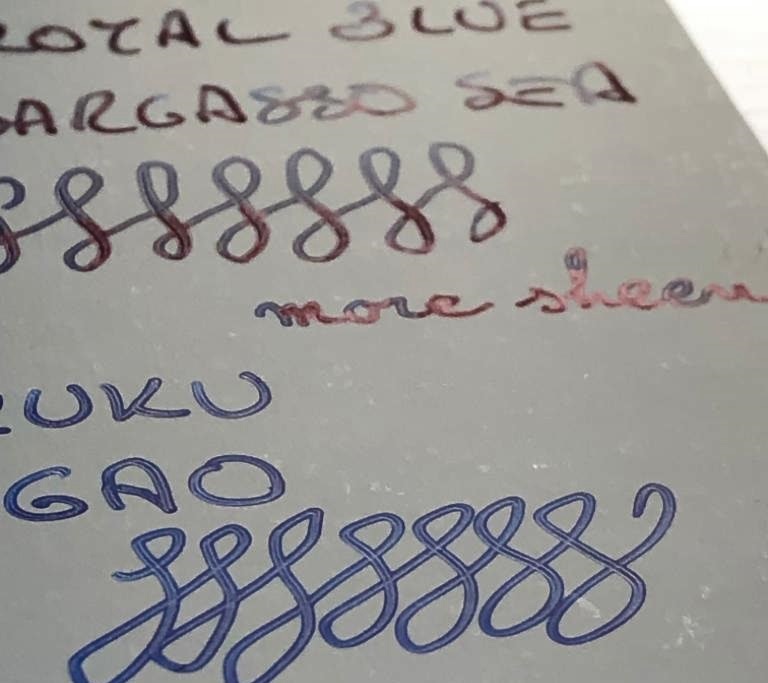 ROYAL BLUE
SARGASSO SEA
more sheen
UKU
GAO